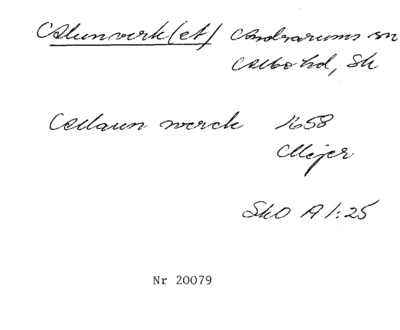 Alunverk(et) Andrarums sn
Albo hd, Sk
Allaun werck 1658
Meijer
SkO A 1:25
Nr 20079